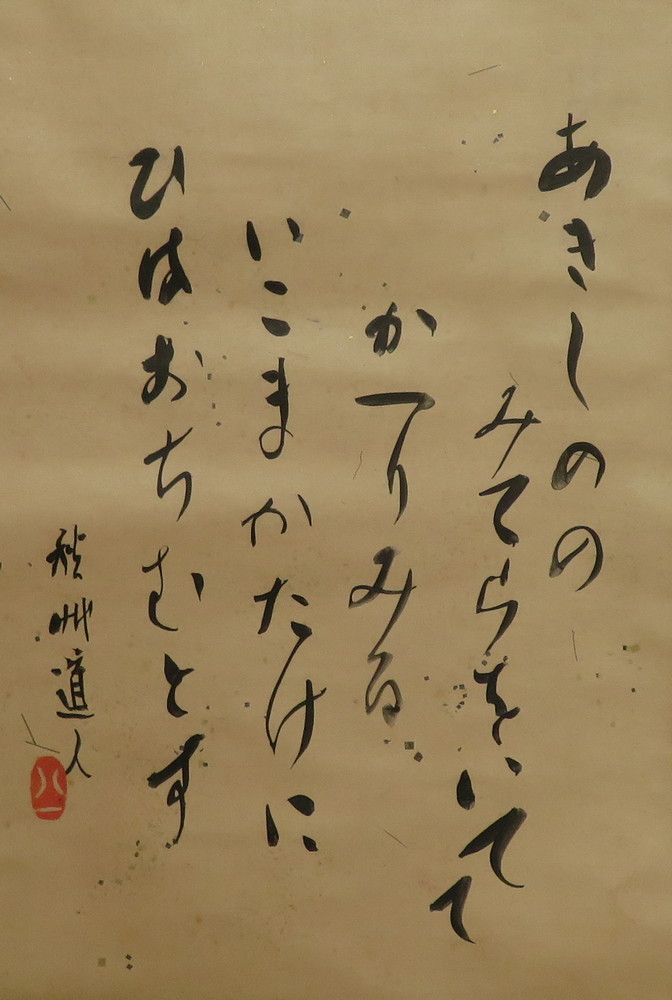 あきしのの
みてらをいてて
かへりみる
いこまかたけに
ひはおちむとす
秋艸道人